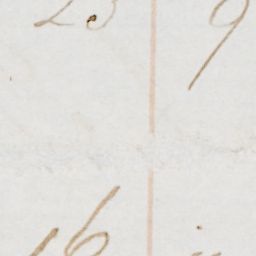 23 9
16 "